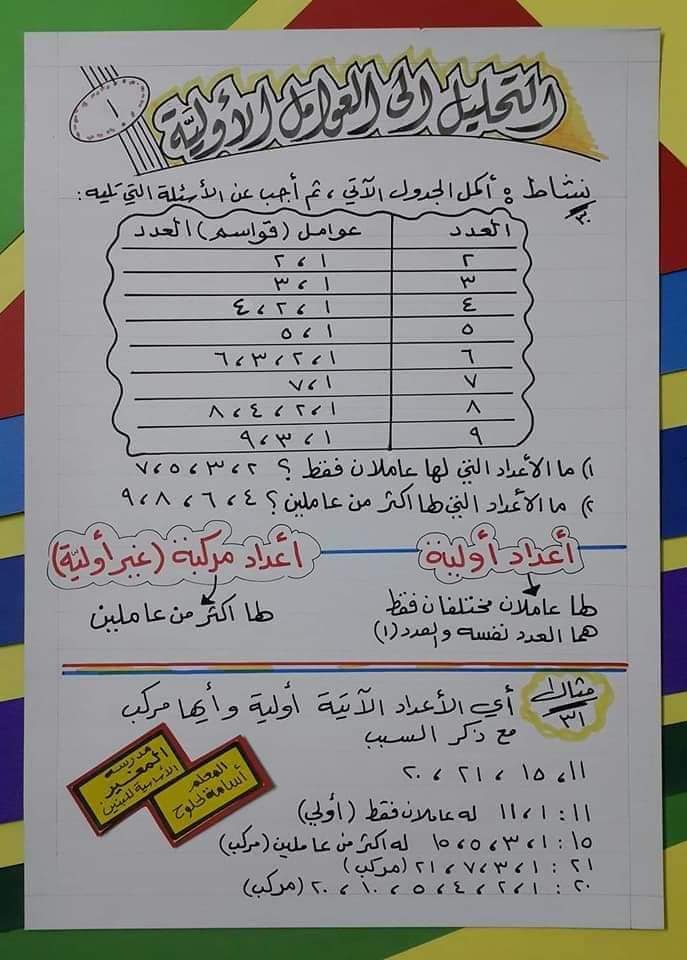 ١
التحليل إلى العوامل الأوليّة
نشاط : أكمل الجدول الآتي ، ثم أجب عن الأسئلة التي تليه :
٣٠
العدد عوامل (قواسم) العدد
٢ ١ ، ٢
٣ ١ ، ٣
٤ ١ ، ٢ ، ٤
٥ ١ ، ٥
٦ ١ ، ٢ ، ٣ ، ٦
٧ ١ ، ٧
٨ ١ ، ٢ ، ٤ ، ٨
٩ ١ ، ٣ ، ٩
١) ما الأعداد التي لها عاملان فقط ؟ ٢ ، ٣ ، ٥ ، ٧
٢) ما الأعداد التي لها اكثر من عاملين ؟ ٤ ، ٦ ، ٨ ، ٩
أعداد أولية
لها عاملان مختلفان فقط
هما العدد نفسه والعدد (١)
أعداد مركبة (غير أوليّة)
لها اكثر من عاملين
مثال ١
٣١
أي الأعداد الآتية أولية وأيها مركب
مع ذكر السبب
١١ ، ١٥ ، ٢١ ، ٢٠
١١ : ١ ، ١١ له عاملان فقط (أولي)
١٥ : ١ ، ٣ ، ٥ ، ١٥ له اكثر من عاملين (مركب)
٢١ : ١ ، ٣ ، ٧ ، ٢١ (مركب)
٢٠ : ١ ، ٢ ، ٤ ، ٥ ، ١٠ ، ٢٠ (مركب)
مدرسة
المغير
الأساسية للبنين
المعلم
أسامة لحلوح